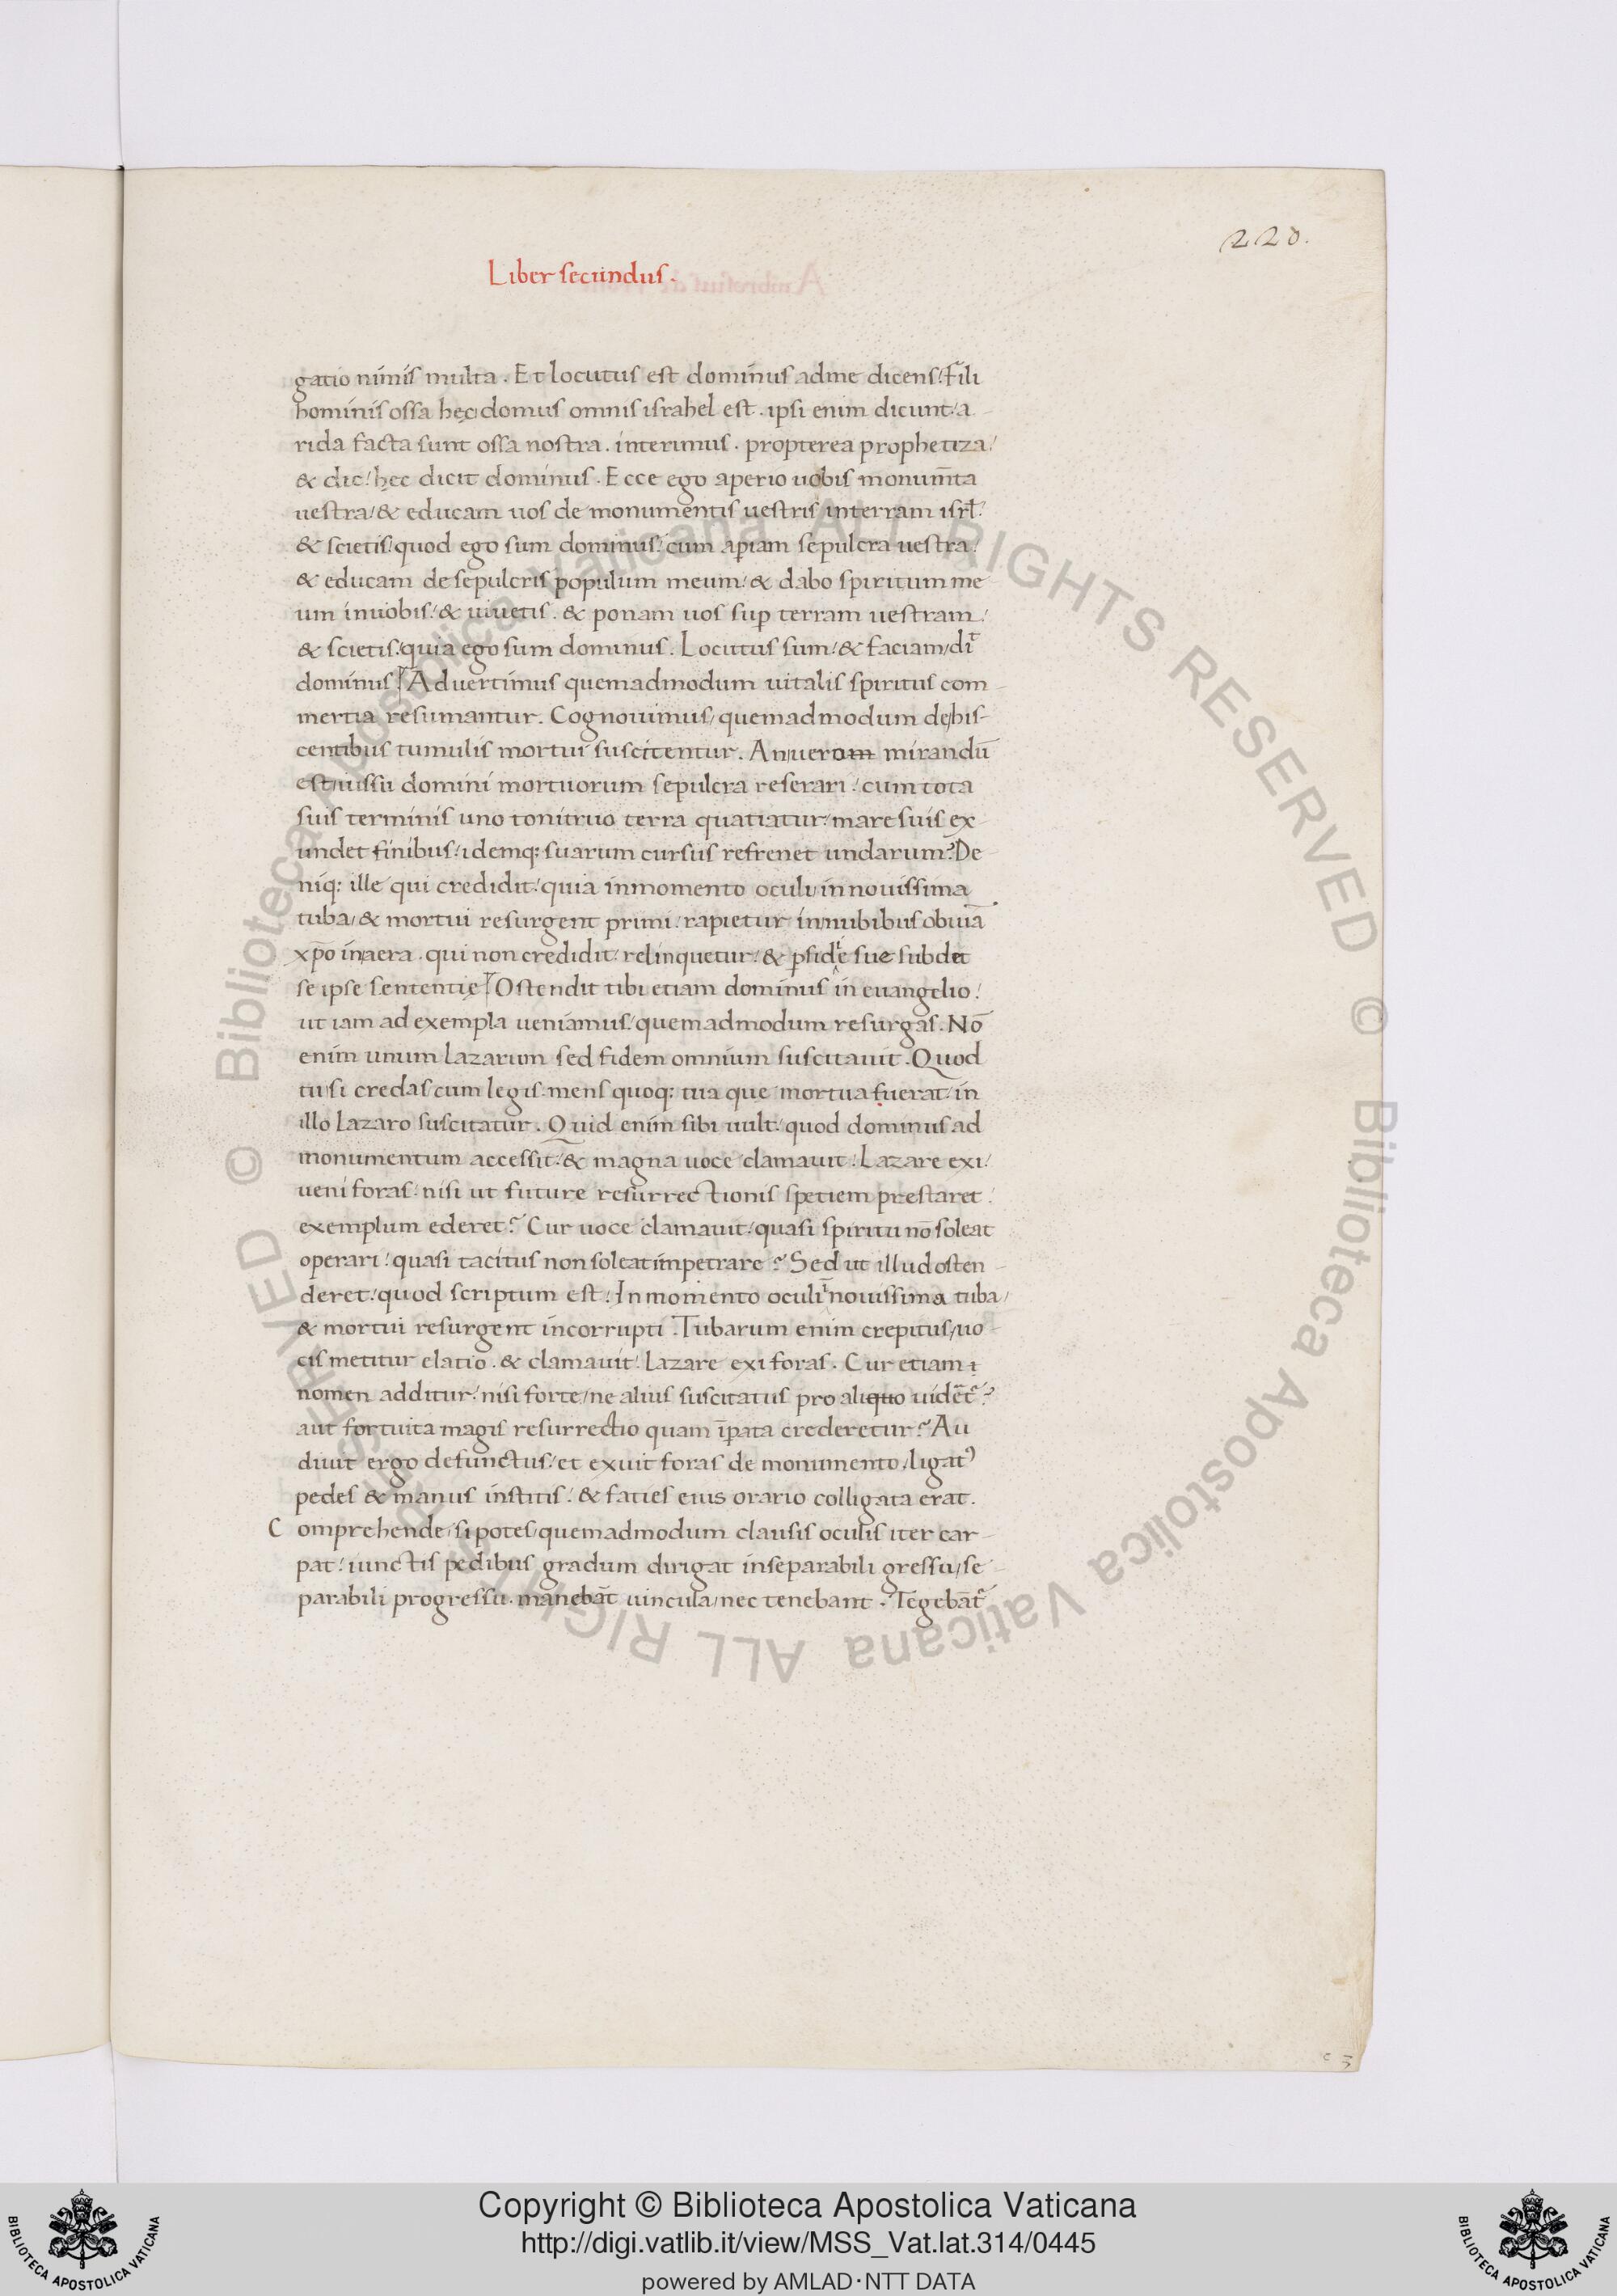 220.
Liber secundus.
gatio nimis multa. Et locutus est dominus adme dicens: Fili
hominis ossa hęc domus omnis israhel est. ipsi enim dicunt: a
rida facta sunt ossa nostra. interimus. propterea prophetiza:
& dic: hęc dicit dominus. Ecce ego aperio uobis monum̄ta
uestra: & educam uos de monumentis uestris interram isrł:
& scietis: quod ego sum dominus: cum apiam sepulcra uestra:
& educam de sepulcris populum meum: & dabo spiritum me
um inuobis: & uiuetis. & ponam uos sup̱ terram uestram:
& scietis: quia ego sum dominus. Locutus sum: & faciam/ dī
dominus Aduertimus quemadmodum uitalis spiritus com
mertia resumantur. Cognouimus/ quemadmodum dehis-
centibus tumulis mortui suscitentur. An uerom mirandū
est/ iussu domini mortuorum sepulcra reserari: cum tota
suis terminis uno tonitruo terra quatiatur: mare suis ex
undet finibus: idemq: suarum cursus refrenet undarum? De
niq: ille qui credidit: quia inmomento oculi in nouissima
tuba/ & mortui resurgent primi: rapietur in nubibus obuiā
xp̄o in aera. qui non credidit: relinquetur: & ꝑfidie sue subdet
se ipse sententię Ostendit tibi etiam dominus in euangelio:
ut iam ad exempla ueniamus: quemadmodum resurgas. Nō
enim unum Lazarum sed fidem omnium suscitauit. Quod
tu si credas cum legis: mens quoq: tua que mortua fuerat: in
illo Lazaro suscitatur. Quid enim sibi uult: quod dominus ad
monumentum accessit: & magna uoce clamauit: Lazare exi:
ueni foras: nisi ut future resurrectionis spetiem prestaret:
exemplum ederet? Cur uoce clamauit: quasi spiritu nō soleat
operari: quasi tacitus non soleat impetrare? Sed ut illud osten
deret: quod scriptum est: In momento oculi ī nouissima tuba/
& mortui resurgent incorrupti. Tubarum enim crepitus/ uo
cis metitur elatio. & clamauit: Lazare exi foras. Cur etiam
nomen additur: nisi forte/ ne alius suscitatus pro aliquo uidēt?
aut fortuita magis resurrectio quam īpata crederetur? Au
diuit ergo defunctus: et exiuit foras de monumento/ ligat᾽
pedes & manus institis: & faties eius orario colligata erat.
Comprehende/ si potes/ quemadmodum clausis oculis iter car
pat: iunctis pedibus gradum dirigat inseparabili gressu/ se
parabili progressu. manebāt uincula/ nec tenebant. Tegebāt
Copyright © Biblioteca Apostolica Vaticana
http://digi.vatlib.it/view/MSS_Vat.lat.314/0445
powered by AMLAD·NTT DATA
BIBLIOTECA APOSTOLICA VATICANA
BIBLIOTECA APOSTOLICA VATICANA
© Biblioteca Apostolica Vaticana ALL RIGHTS RESERVED
© Biblioteca Apostolica Vaticana ALL RIGHTS RESERVED